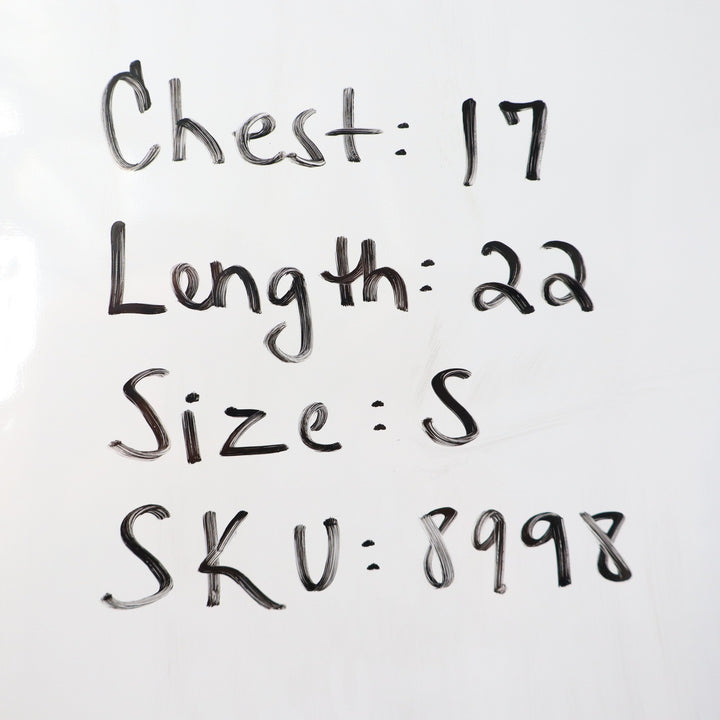 Chest: 17
Length: 22
Size: S
SKU: 8998